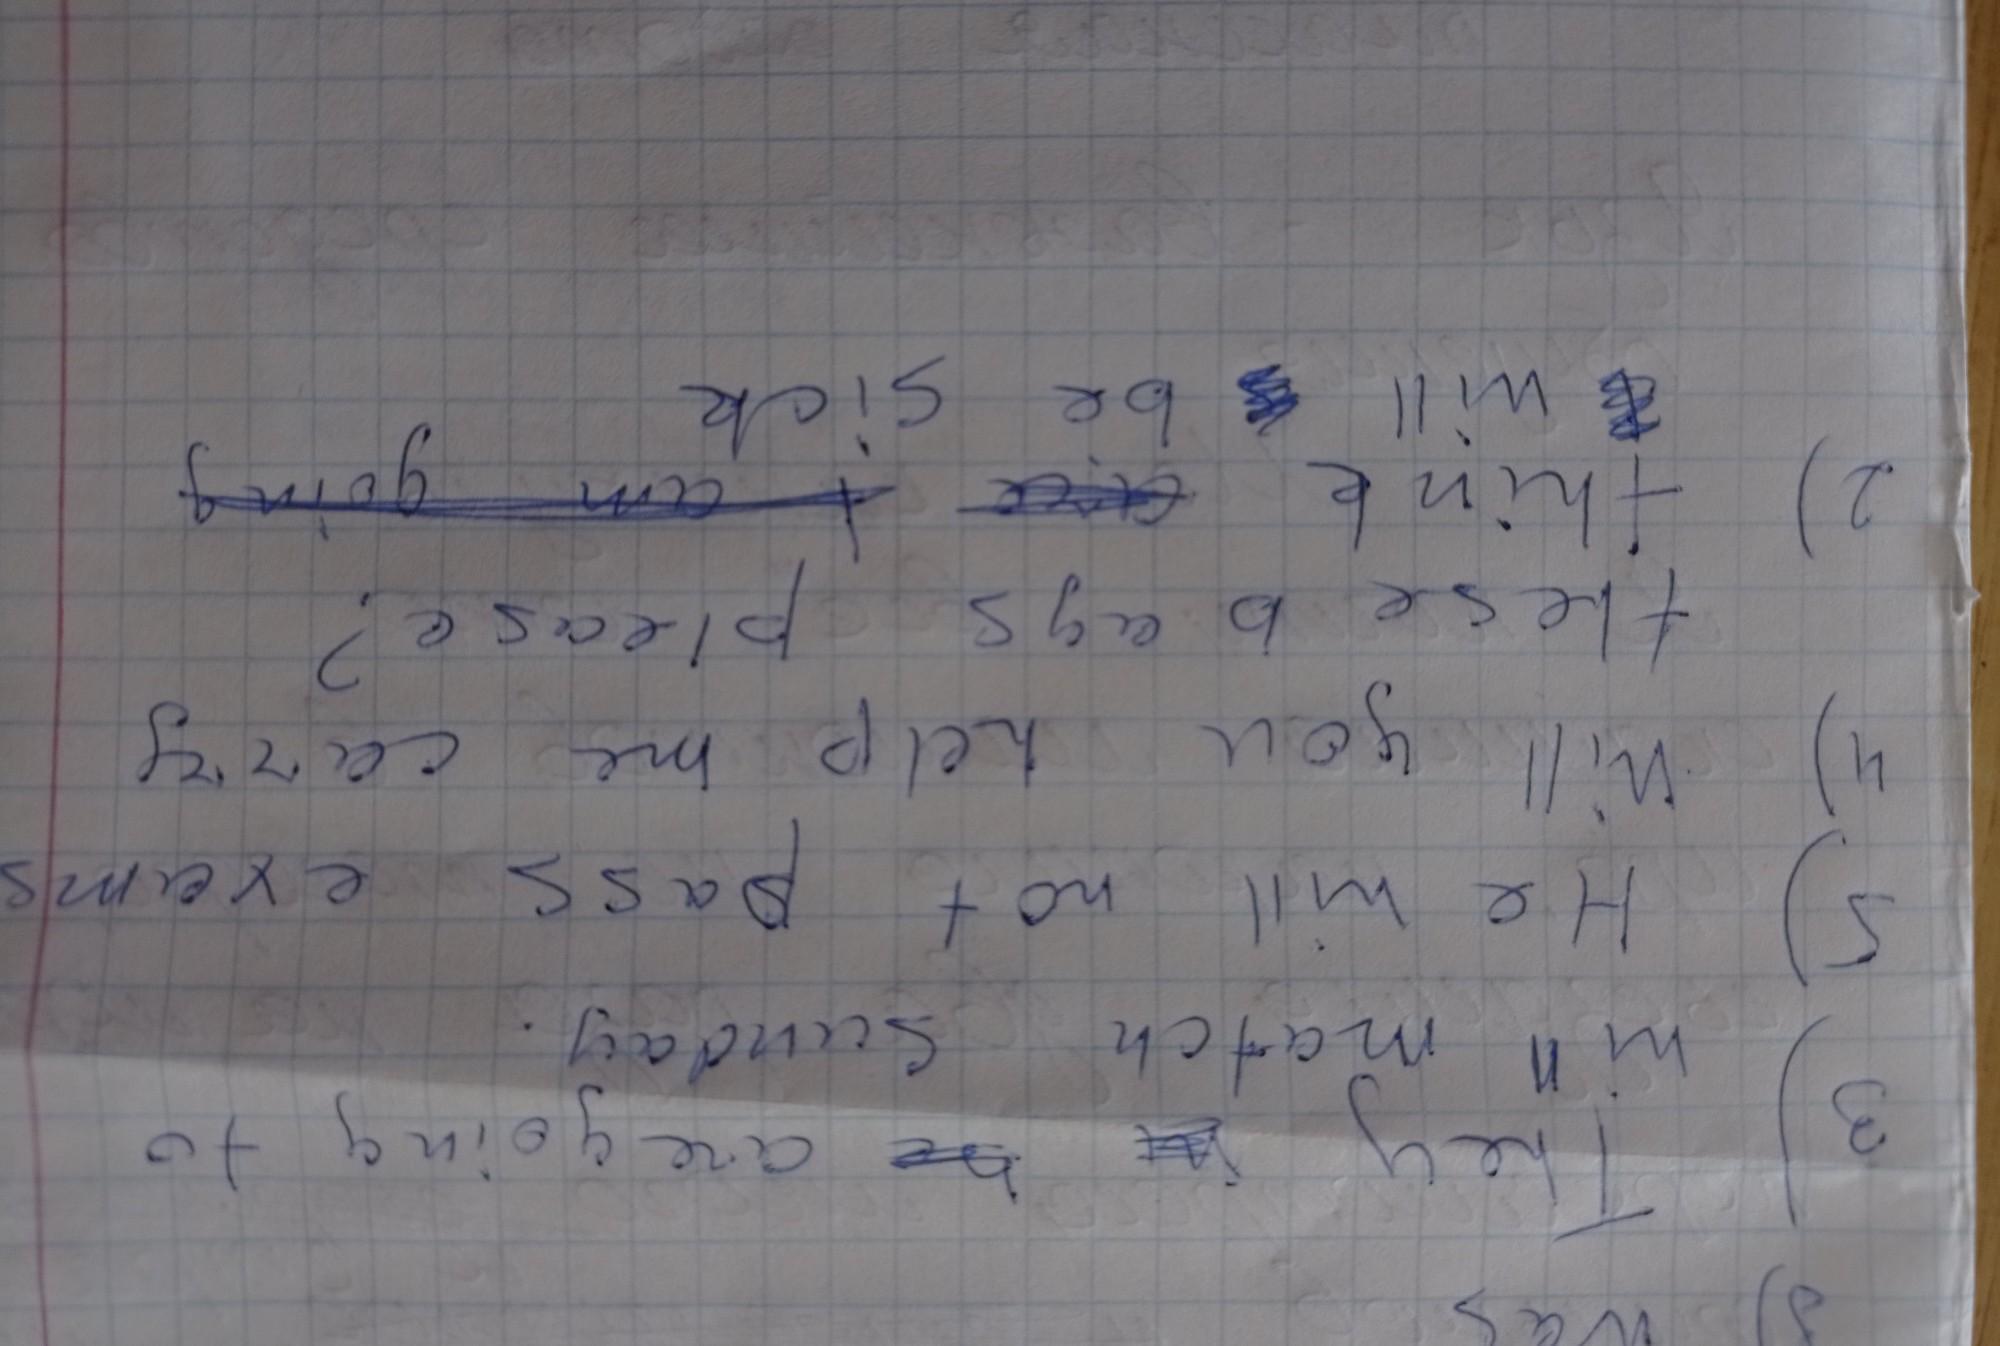 8) was
3) They are going to
win match Sunday.
5) He will not pass exams
4) Will you help me carry
these bags please?
2) think I am going
will be sick